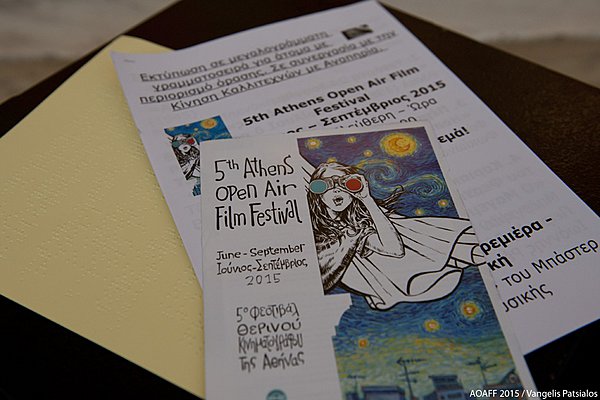 Εκτύπωση σε μεγαλογράμματη
γραμματοσειρά για άτομα με
περιορισμό όρασης. Σε συνεργασία με την
Κίνηση Καλλιτεχνών με Αναπηρία.
5th Athens Open Air Film
Festival
– Σεπτέμβριος 2015
– Ώρα
5th Athens
Open Air
Film Festival
June - September
Ιούνιος-Σεπτέμβριος
2015
5ο Φεστιβάλ
Θερινού
Κινηματογράφου
της Αθήνας
του Μπάστερ
AOAFF 2015 / Vangelis Patsialos